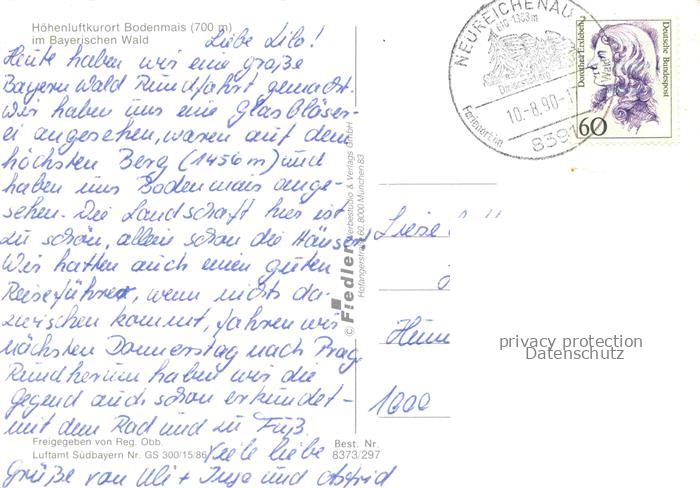 Höhenluftkurort Bodenmais (700 m)
im Bayerischen Wald
Liebe Lilo!
Heute haben wir eine große
Bayern Wald Rundfahrt gemacht.
Wir haben uns eine Glasbläser-
ei angesehen, waren auf dem
höchsten Berg (1456 m) und
haben uns Bodenmais ange-
sehen. Die Landschaft hier ist
zu schön, allein schon die Häuser!
Wir hatten auch einen guten
Reiseführer, wenn nichts da-
zwischen kommt, fahren wir
nächsten Donnerstag nach Prag.
Rundherum haben wir die
Gegend auch schon erkundet -
mit dem Rad und zu Fuß.
Viele liebe
Grüße von Uli + Inge und Astrid
Freigegeben von Reg. Obb.
Luftamt Südbayern Nr. GS 300/15/86
Best. Nr.
8373/297
© Fiedler Werbestudio & Verlags GmbH
8000 München 83
NEUREICHENAU
10.-8.90.-1
8391
Ferienorten
Dorothea Erxleben
Deutsche Bundespost
60
1000
privacy protection
Datenschutz